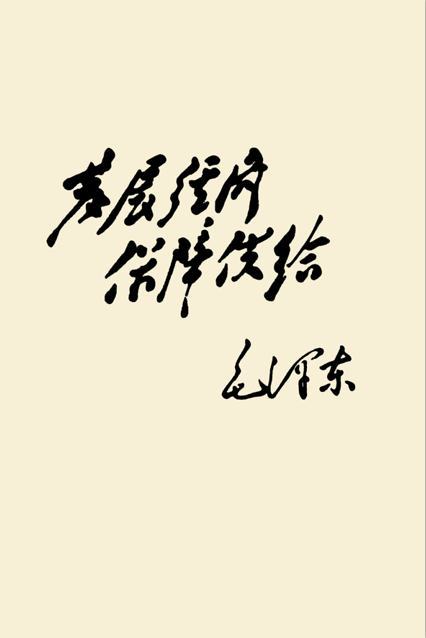 发展经济
保障供给
毛泽东